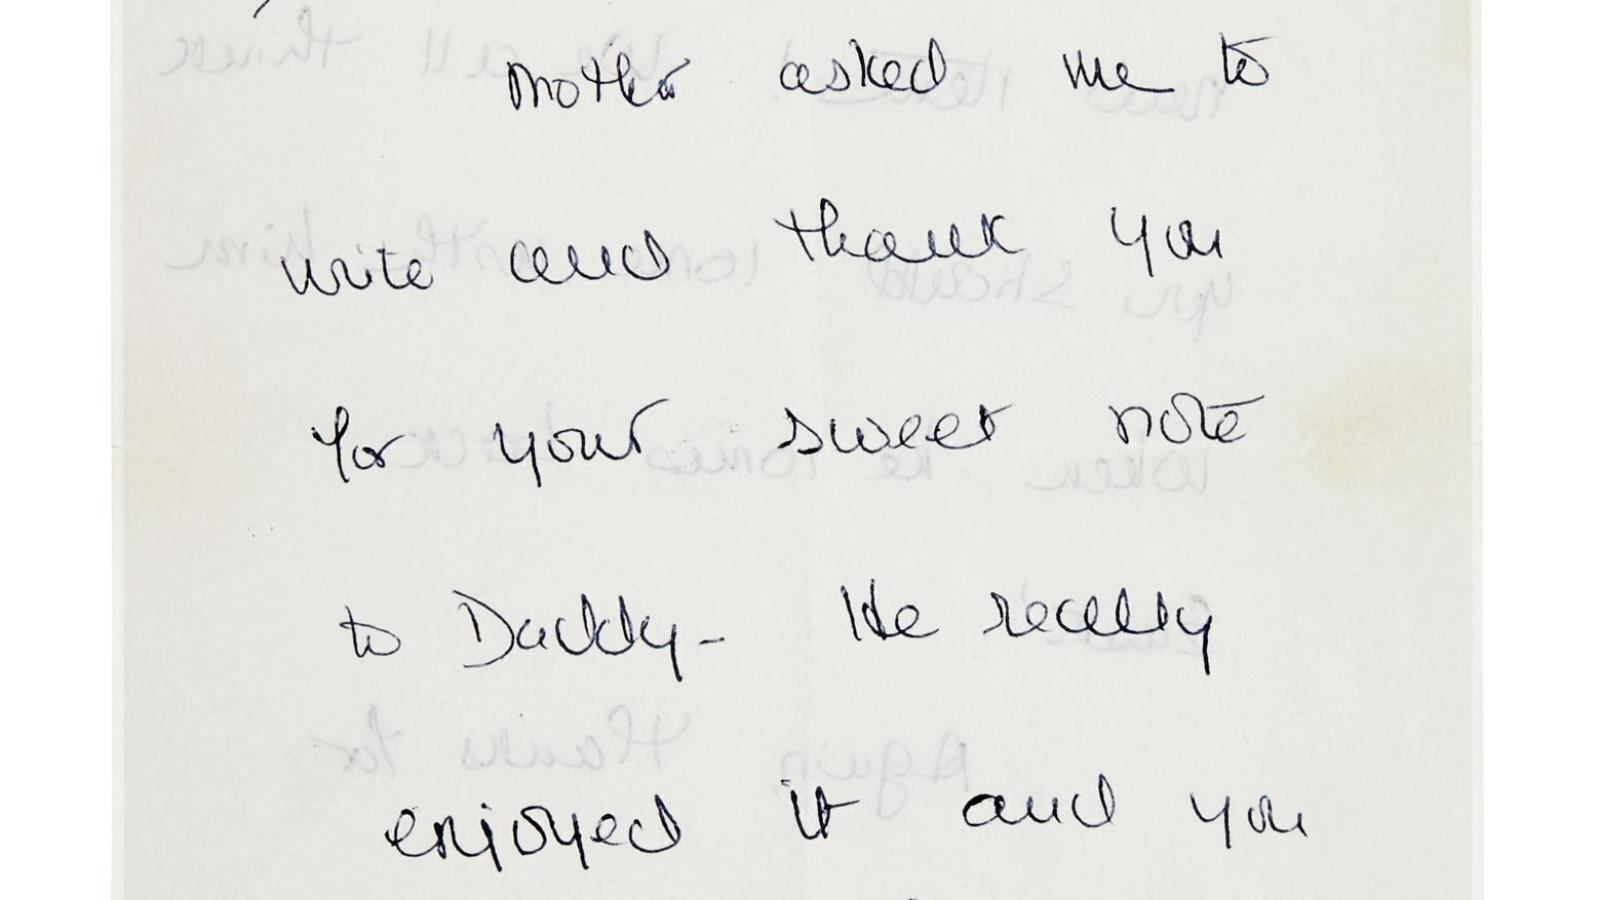 Mother asked me to
write and thank you
for your sweet note
to Daddy - He really
enjoyed it and you